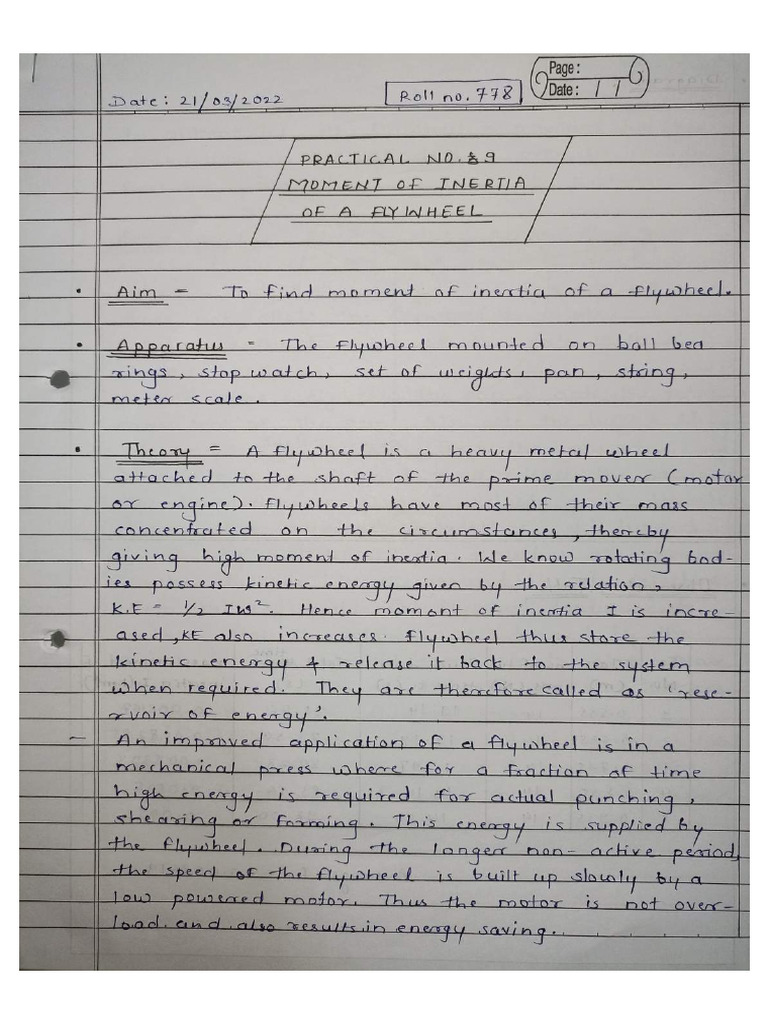 Page:
Date: / /
Date: 21/03/2022
Roll no. 778
PRACTICAL NO. 9
MOMENT OF INERTIA
OF A FLYWHEEL
• Aim = To find moment of inertia of a flywheel.
• Apparatus = The flywheel mounted on ball bea
rings, stop watch, set of weights, pan, string,
meter scale.
• Theory = A flywheel is a heavy metal wheel
attached to the shaft of the prime mover (motor
or engine). Flywheels have most of their mass
concentrated on the circumstances, thereby
giving high moment of inertia. We know rotating bod-
ies possess kinetic energy given by the relation,
K.E = 1/2 Iω². Hence momont of inertia I is incre-
ased, KE also increases. Flywheel thus store the
kinetic energy & release it back to the system
when required. They are therefore called as 'rese-
rvoir of energy'.
- An improved application of a flywheel is in a
mechanical press where for a fraction of time
high energy is required for actual punching,
shearing or forming. This energy is supplied by
the flywheel. During the longer non-active period,
the speed of the flywheel is built up slowly by a
low powered motor. Thus the motor is not over-
load. and also results in energy saving.